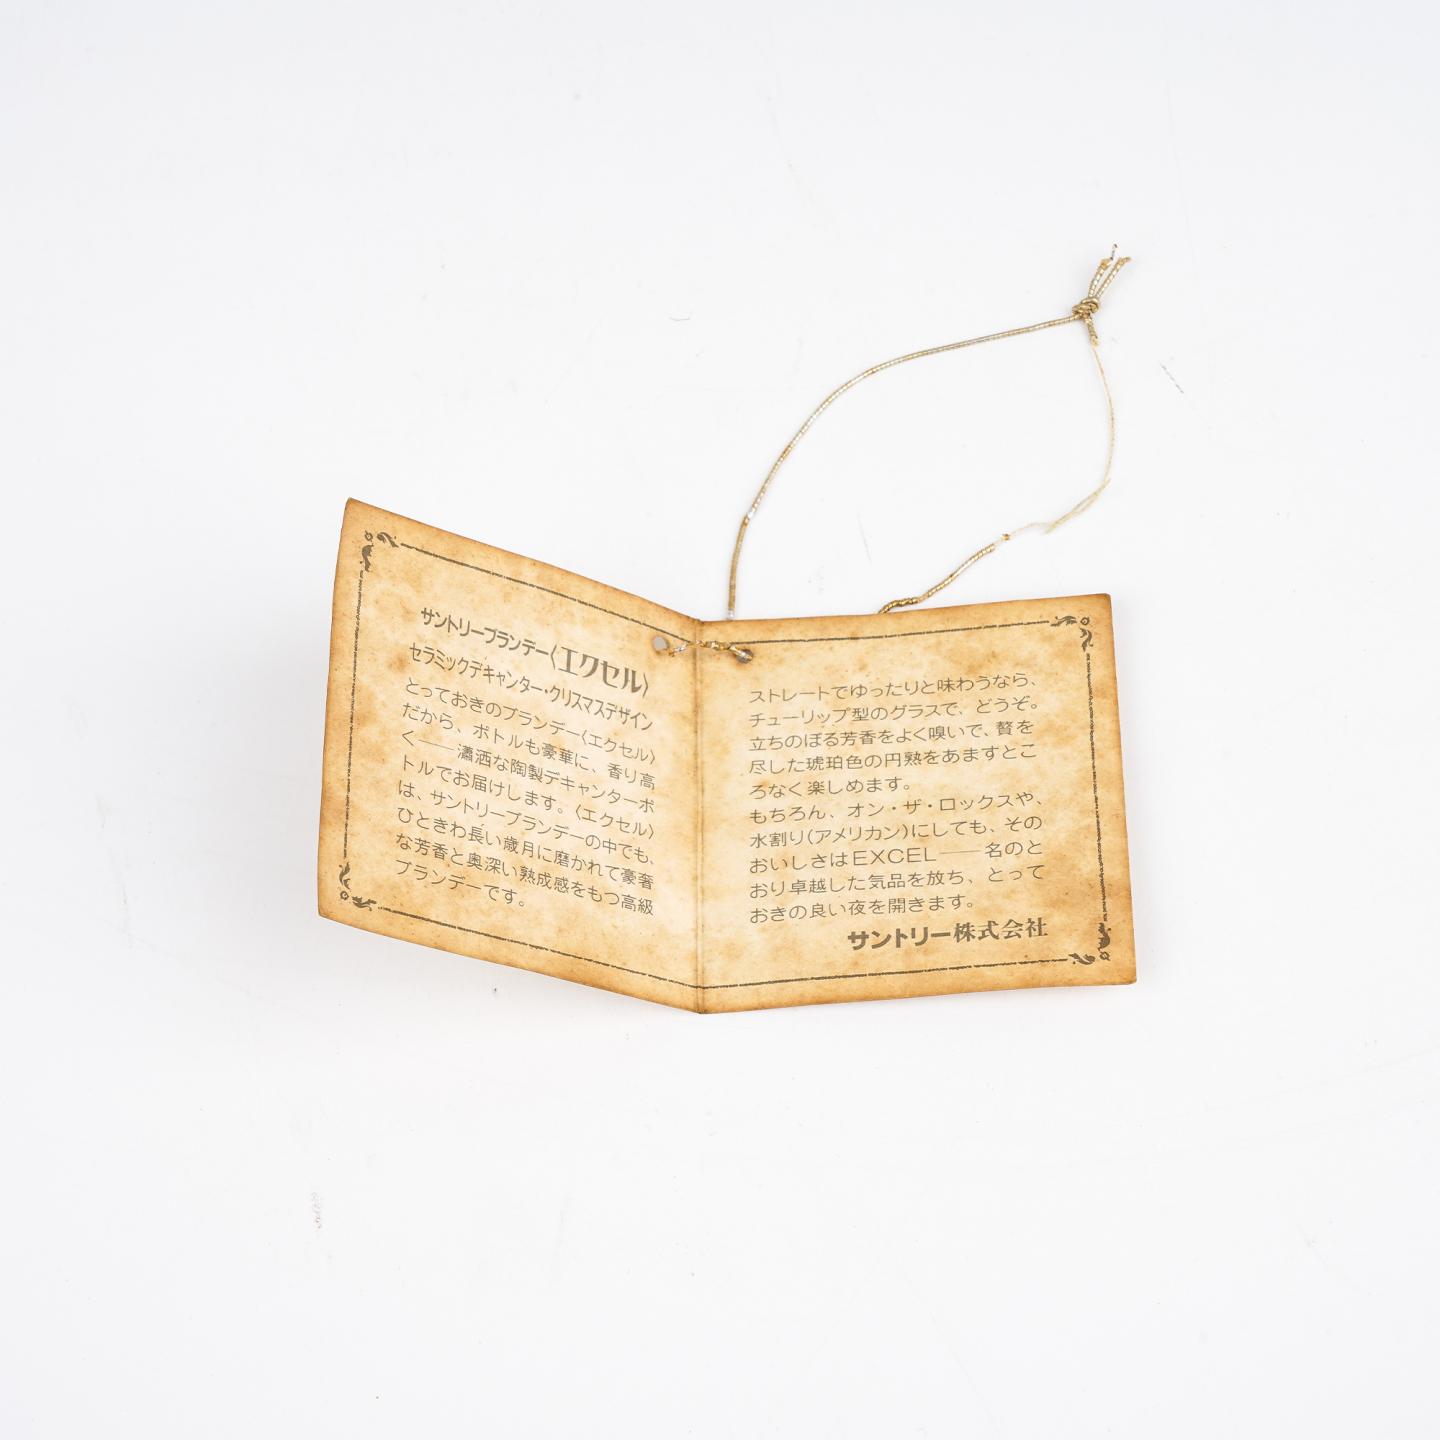 サントリーブランデー〈エクセル〉
セラミックデキャンター・クリスマスデザイン
とっておきのブランデー〈エクセル〉
だから、ボトルも豪華に、香り高
く──瀟洒な陶製デキャンターボ
トルでお届けします。〈エクセル〉
は、サントリーブランデーの中でも、
ひときわ長い歳月に磨かれて豪奢
な芳香と奥深い熟成感をもつ高級
ブランデーです。
ストレートでゆったりと味わうなら、
チューリップ型のグラスで、どうぞ。
立ちのぼる芳香をよく嗅いで、贅を
尽した琥珀色の円熟をあますとこ
ろなく楽しめます。
もちろん、オン・ザ・ロックスや、
水割り(アメリカン)にしても、その
おいしさはEXCEL──名のと
おり卓越した気品を放ち、とって
おきの良い夜を開きます。
サントリー株式会社